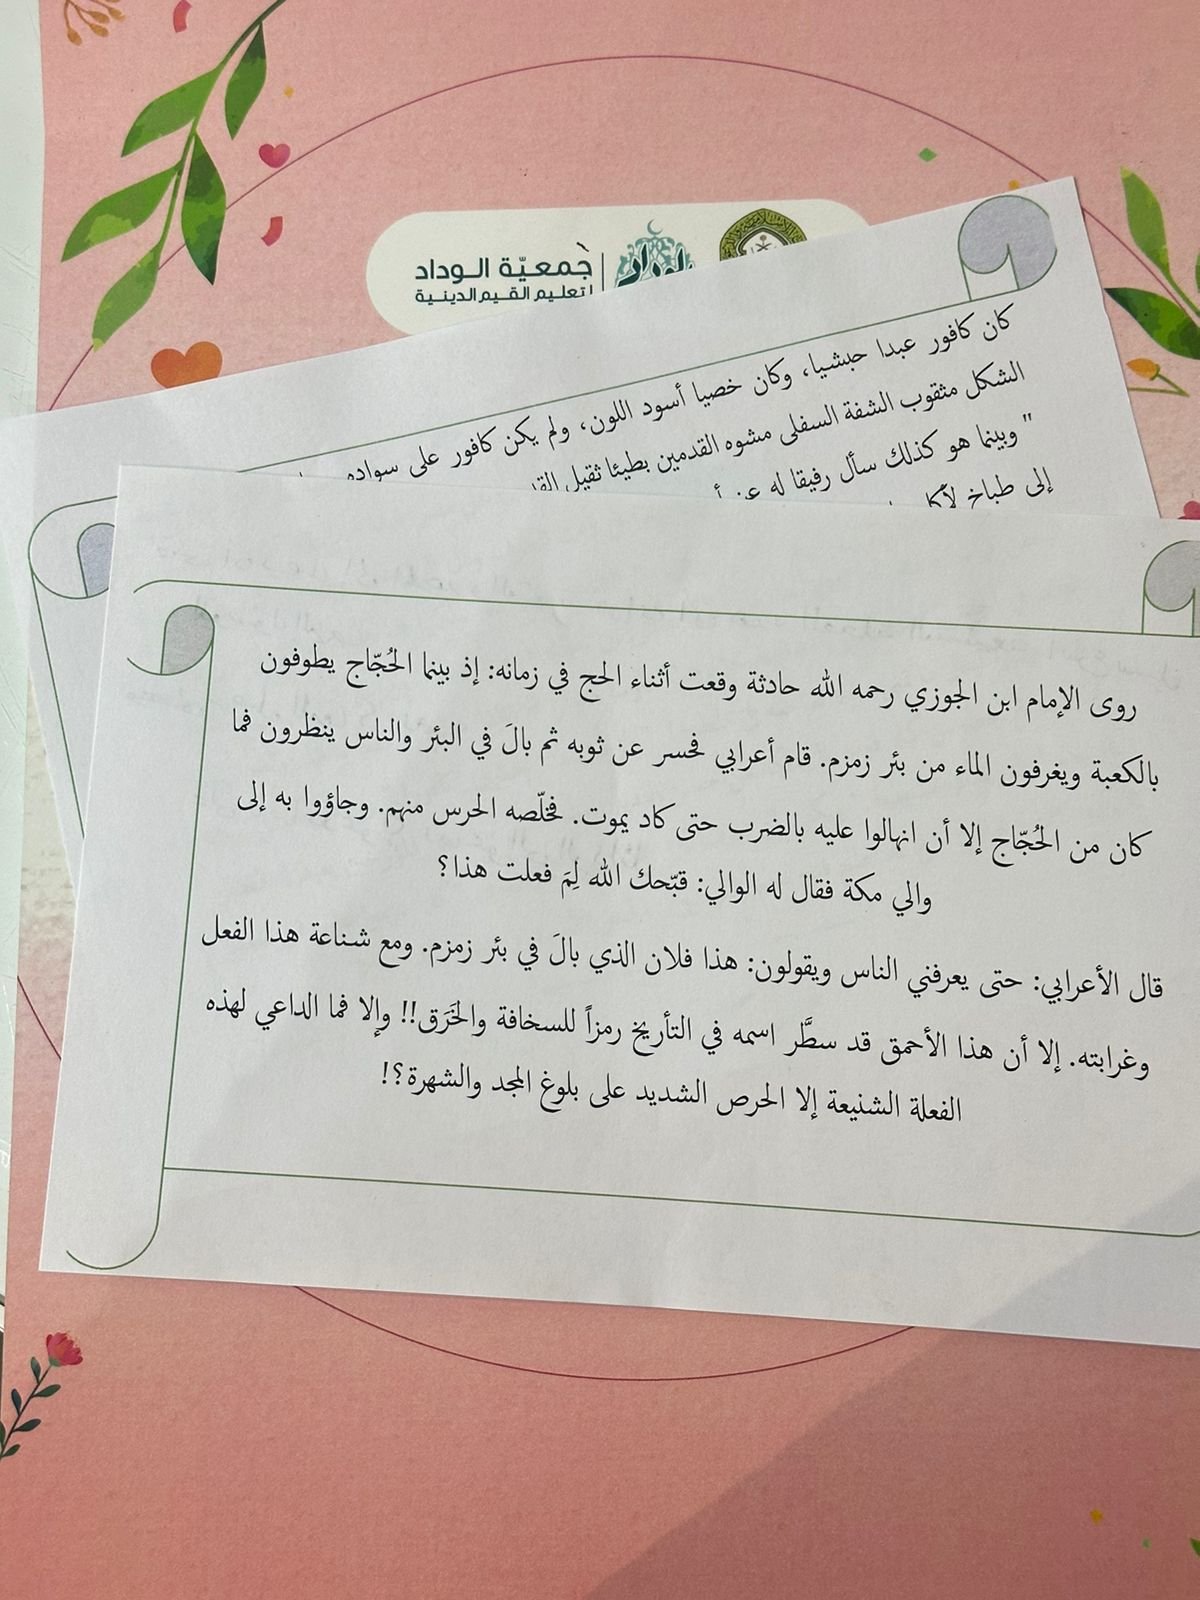 جمعيّة الوداد
لتعليم القيم الدينية
كان كافور عبدا حبشيا، وكان خصيا أسود اللون، ولم يكن كافور على سواده
الشكل مثقوب الشفة السفلى مشوه القدمين بطيئا ثقيل
" وبينما هو كذلك سأل رفيقا له عن
إلى طباخ لآكل
روى الإمام ابن الجوزي رحمه الله حادثة وقعت أثناء الحج في زمانه: إذ بينما الحُجّاج يطوفون
بالكعبة ويغرفون الماء من بئر زمزم. قام أعرابي فحسر عن ثوبه ثم بالَ في البئر والناس ينظرون فما
كان من الحُجّاج إلا أن انهالوا عليه بالضرب حتى كاد يموت. فخلّصه الحرس منهم. وجاؤوا به إلى
والي مكة فقال له الوالي: قبّحك الله لِمَ فعلت هذا؟
قال الأعرابي: حتى يعرفني الناس ويقولون: هذا فلان الذي بالَ في بئر زمزم. ومع شناعة هذا الفعل
وغرابته. إلا أن هذا الأحمق قد سطَّر اسمه في التأريخ رمزاً للسخافة والخَرَق!! وإلا فما الداعي لهذه
الفعلة الشنيعة إلا الحرص الشديد على بلوغ المجد والشهرة؟!